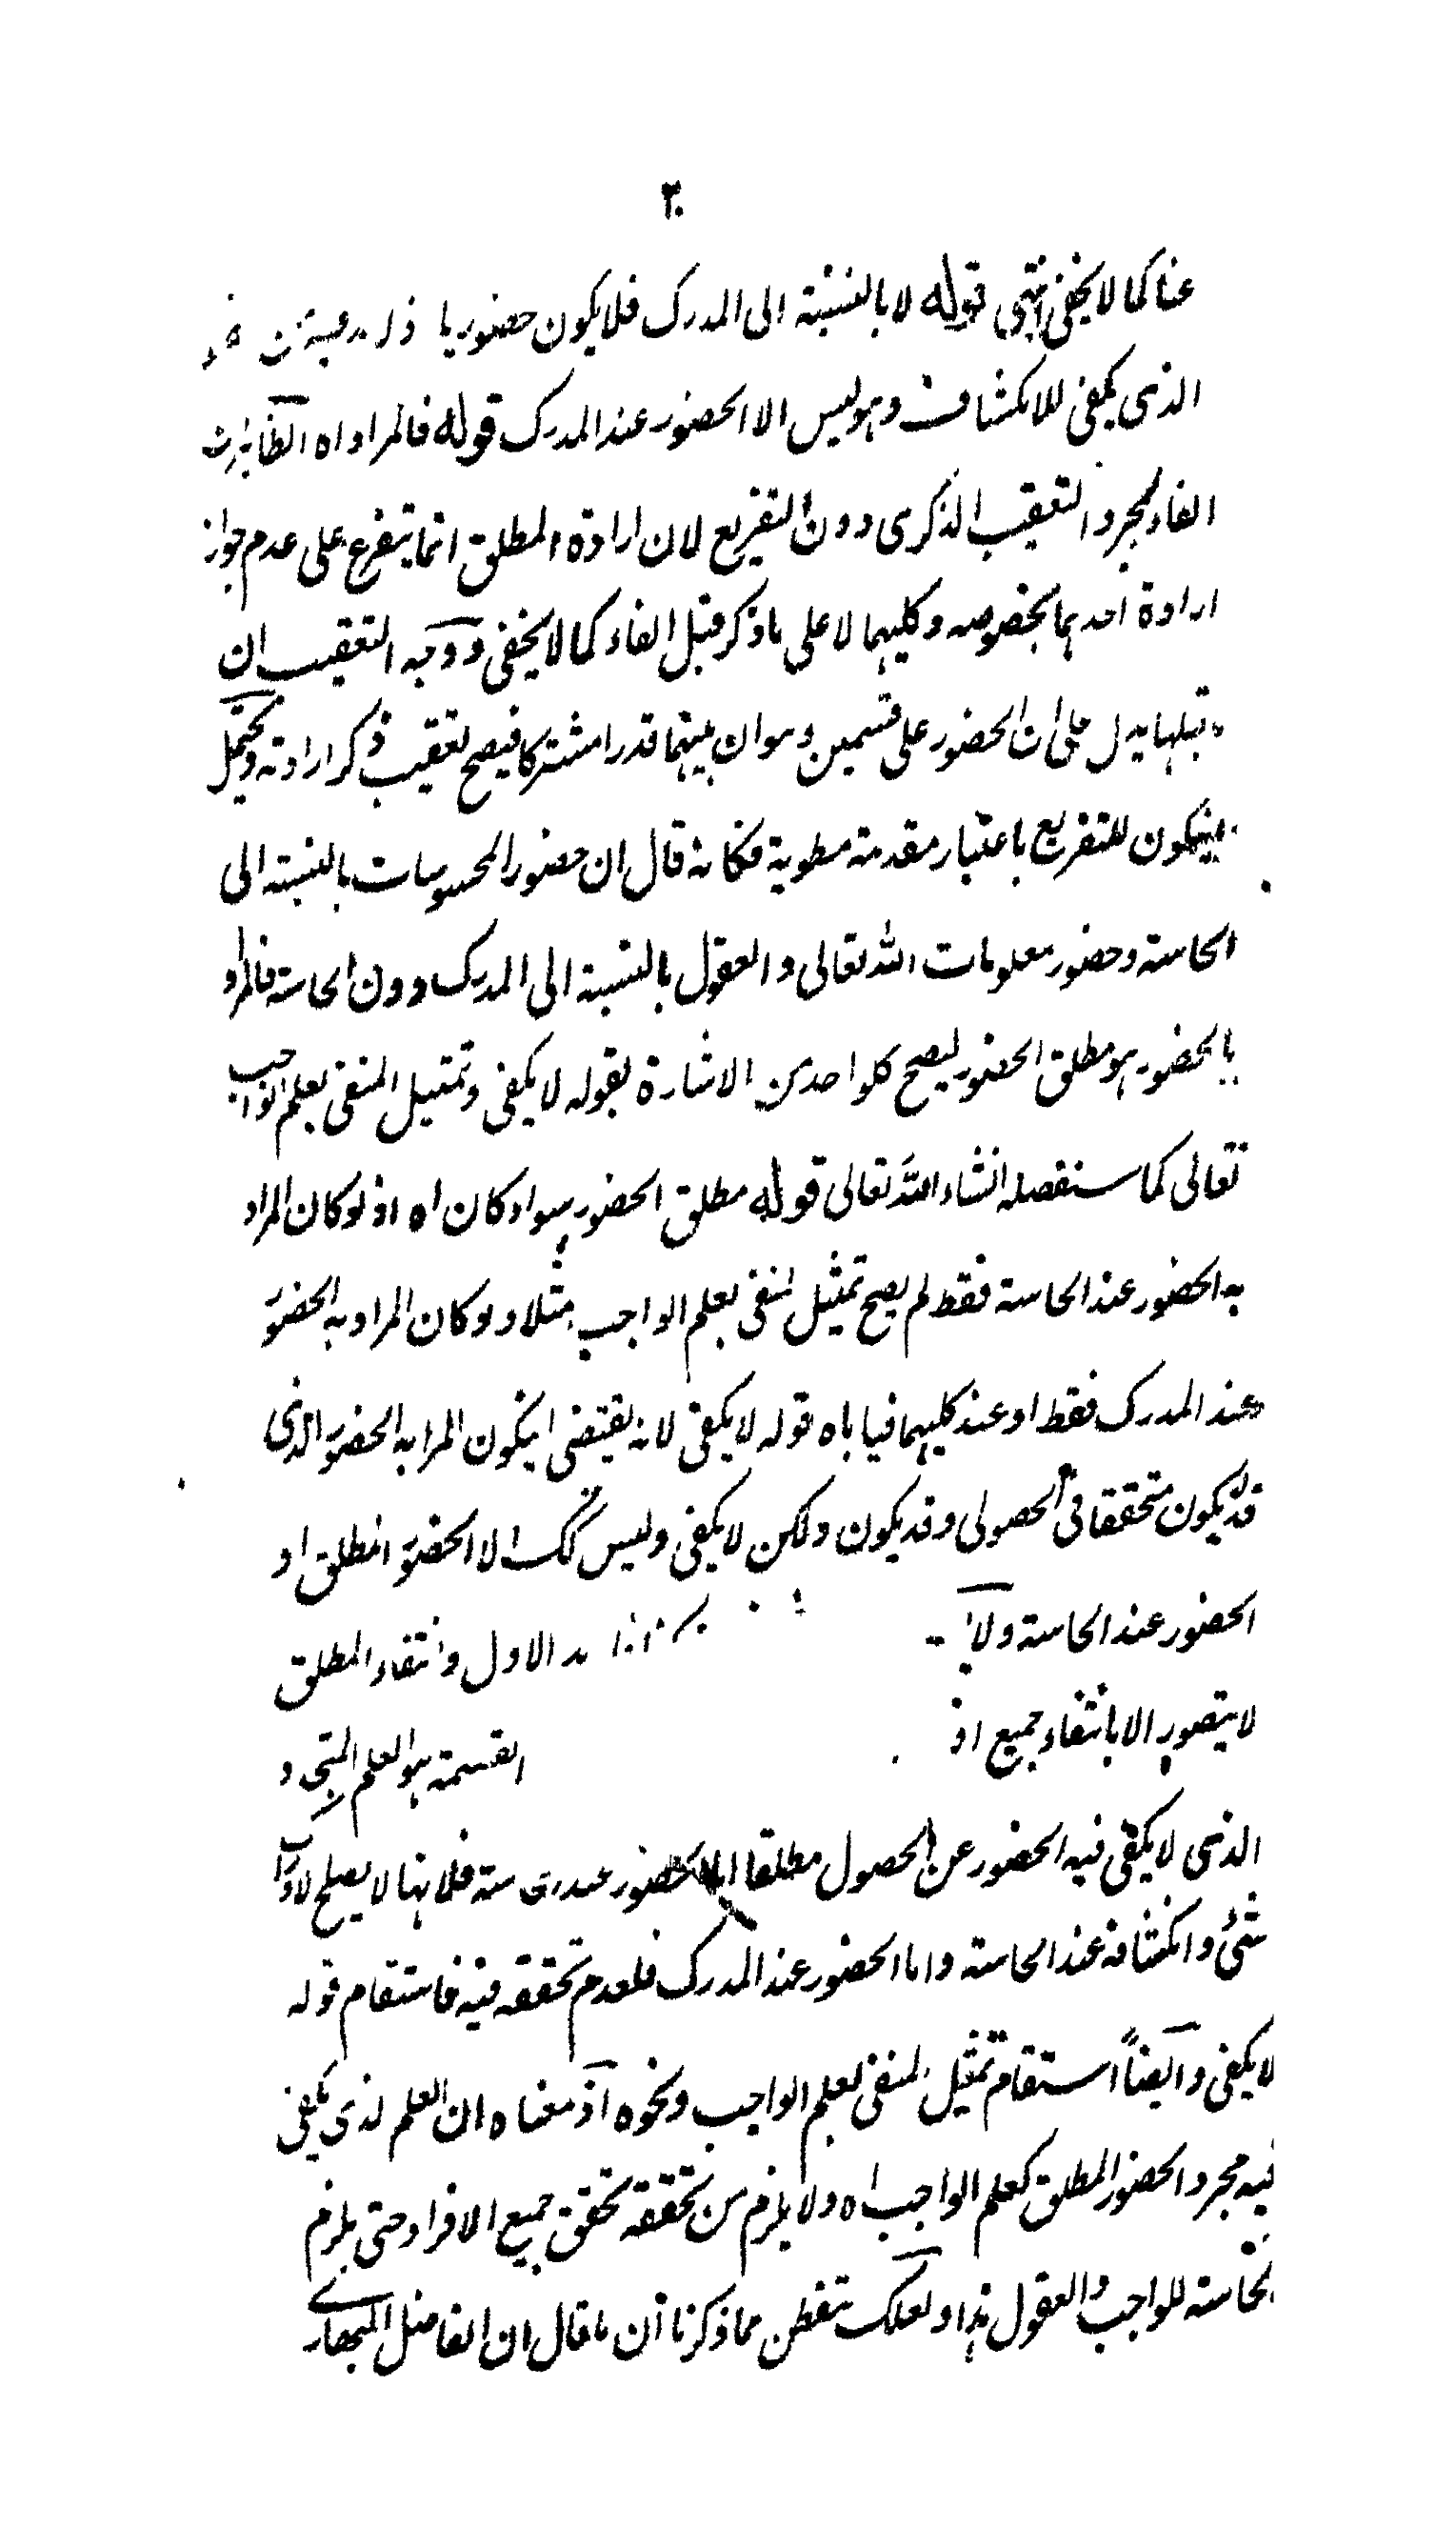 ٣٠
عنا كما لا يخفى انتهى قوله لا بالنسبة الى المدرك فلا يكون حضوريا
الذى يكفى للانكشاف وهو ليس الا الحضور عند المدرك قوله فالمراد اه الظاهر ان
الفاء لمجرد التعقيب الذكرى دون التفريع لان ارادة المطلق انما يتفرع على عدم جواز
ارادة احدهما بخصوصه وكليهما لا على ما ذكر قبل الفاء كما لا يخفى ووجه التعقيب ان
قبلها يدل على ان الحضور على قسمين وهو ان بينهما قدرا مشتركا فيصح تعقيب ذكر ارادته ويحتمل
للتفريع باعتبار مقدمة مطوية فكانه قال ان حضور المحسوسات بالنسبة الى
الحاسة وحضور معلومات الله تعالى والعقول بالنسبة الى المدرك دون الحاسة فالمراد
بالحضور هو مطلق الحضور ليصح كلواحد من الاشارة بقوله لا يكفى وتمثيل المنفى بعلم الواجب
تعالى كما سنفصله انشاء الله تعالى قوله مطلق الحضور سواء كان اه اذ لو كان المراد
به الحضور عند الحاسة فقط لم يصح تمثيل المنفى بعلم الواجب مثلا ولو كان المراد به الحضور
عند المدرك فقط او عند كليهما فياباه قوله لا يكفى لانه يقتضى ان يكون المراد به الحضور الذى
قد يكون متحققا فى الحصولى وقد يكون ولكن لا يكفى وليس كك الا الحضور المطلق او
الحضور عند الحاسة الاول وانتفاء المطلق
لا يتصور الا بانتفاء جميع القسمة هو العلم المتجدد
الذى لا يكفى فيه الحضور عن الحصول مطلقا اما الحضور فلانها لا يصلح لادراك
شئ وانكشافه عند الحاسة واما الحضور عند المدرك فلعدم تحققه فيه فاستقام قوله
لا يكفى وايضاً استقام تمثيل المنفى بعلم الواجب ونحوه اذ معناه ان العلم الذى يكفى
فيه مجرد الحضور المطلق كعلم الواجب اه ولا يلزم من تحققه تحقق جميع الافراد حتى يلزم
الحاسة للواجب والعقول هذا ولعلك تتفطن مما ذكرنا ان ما قال ان الفاضل البهارى